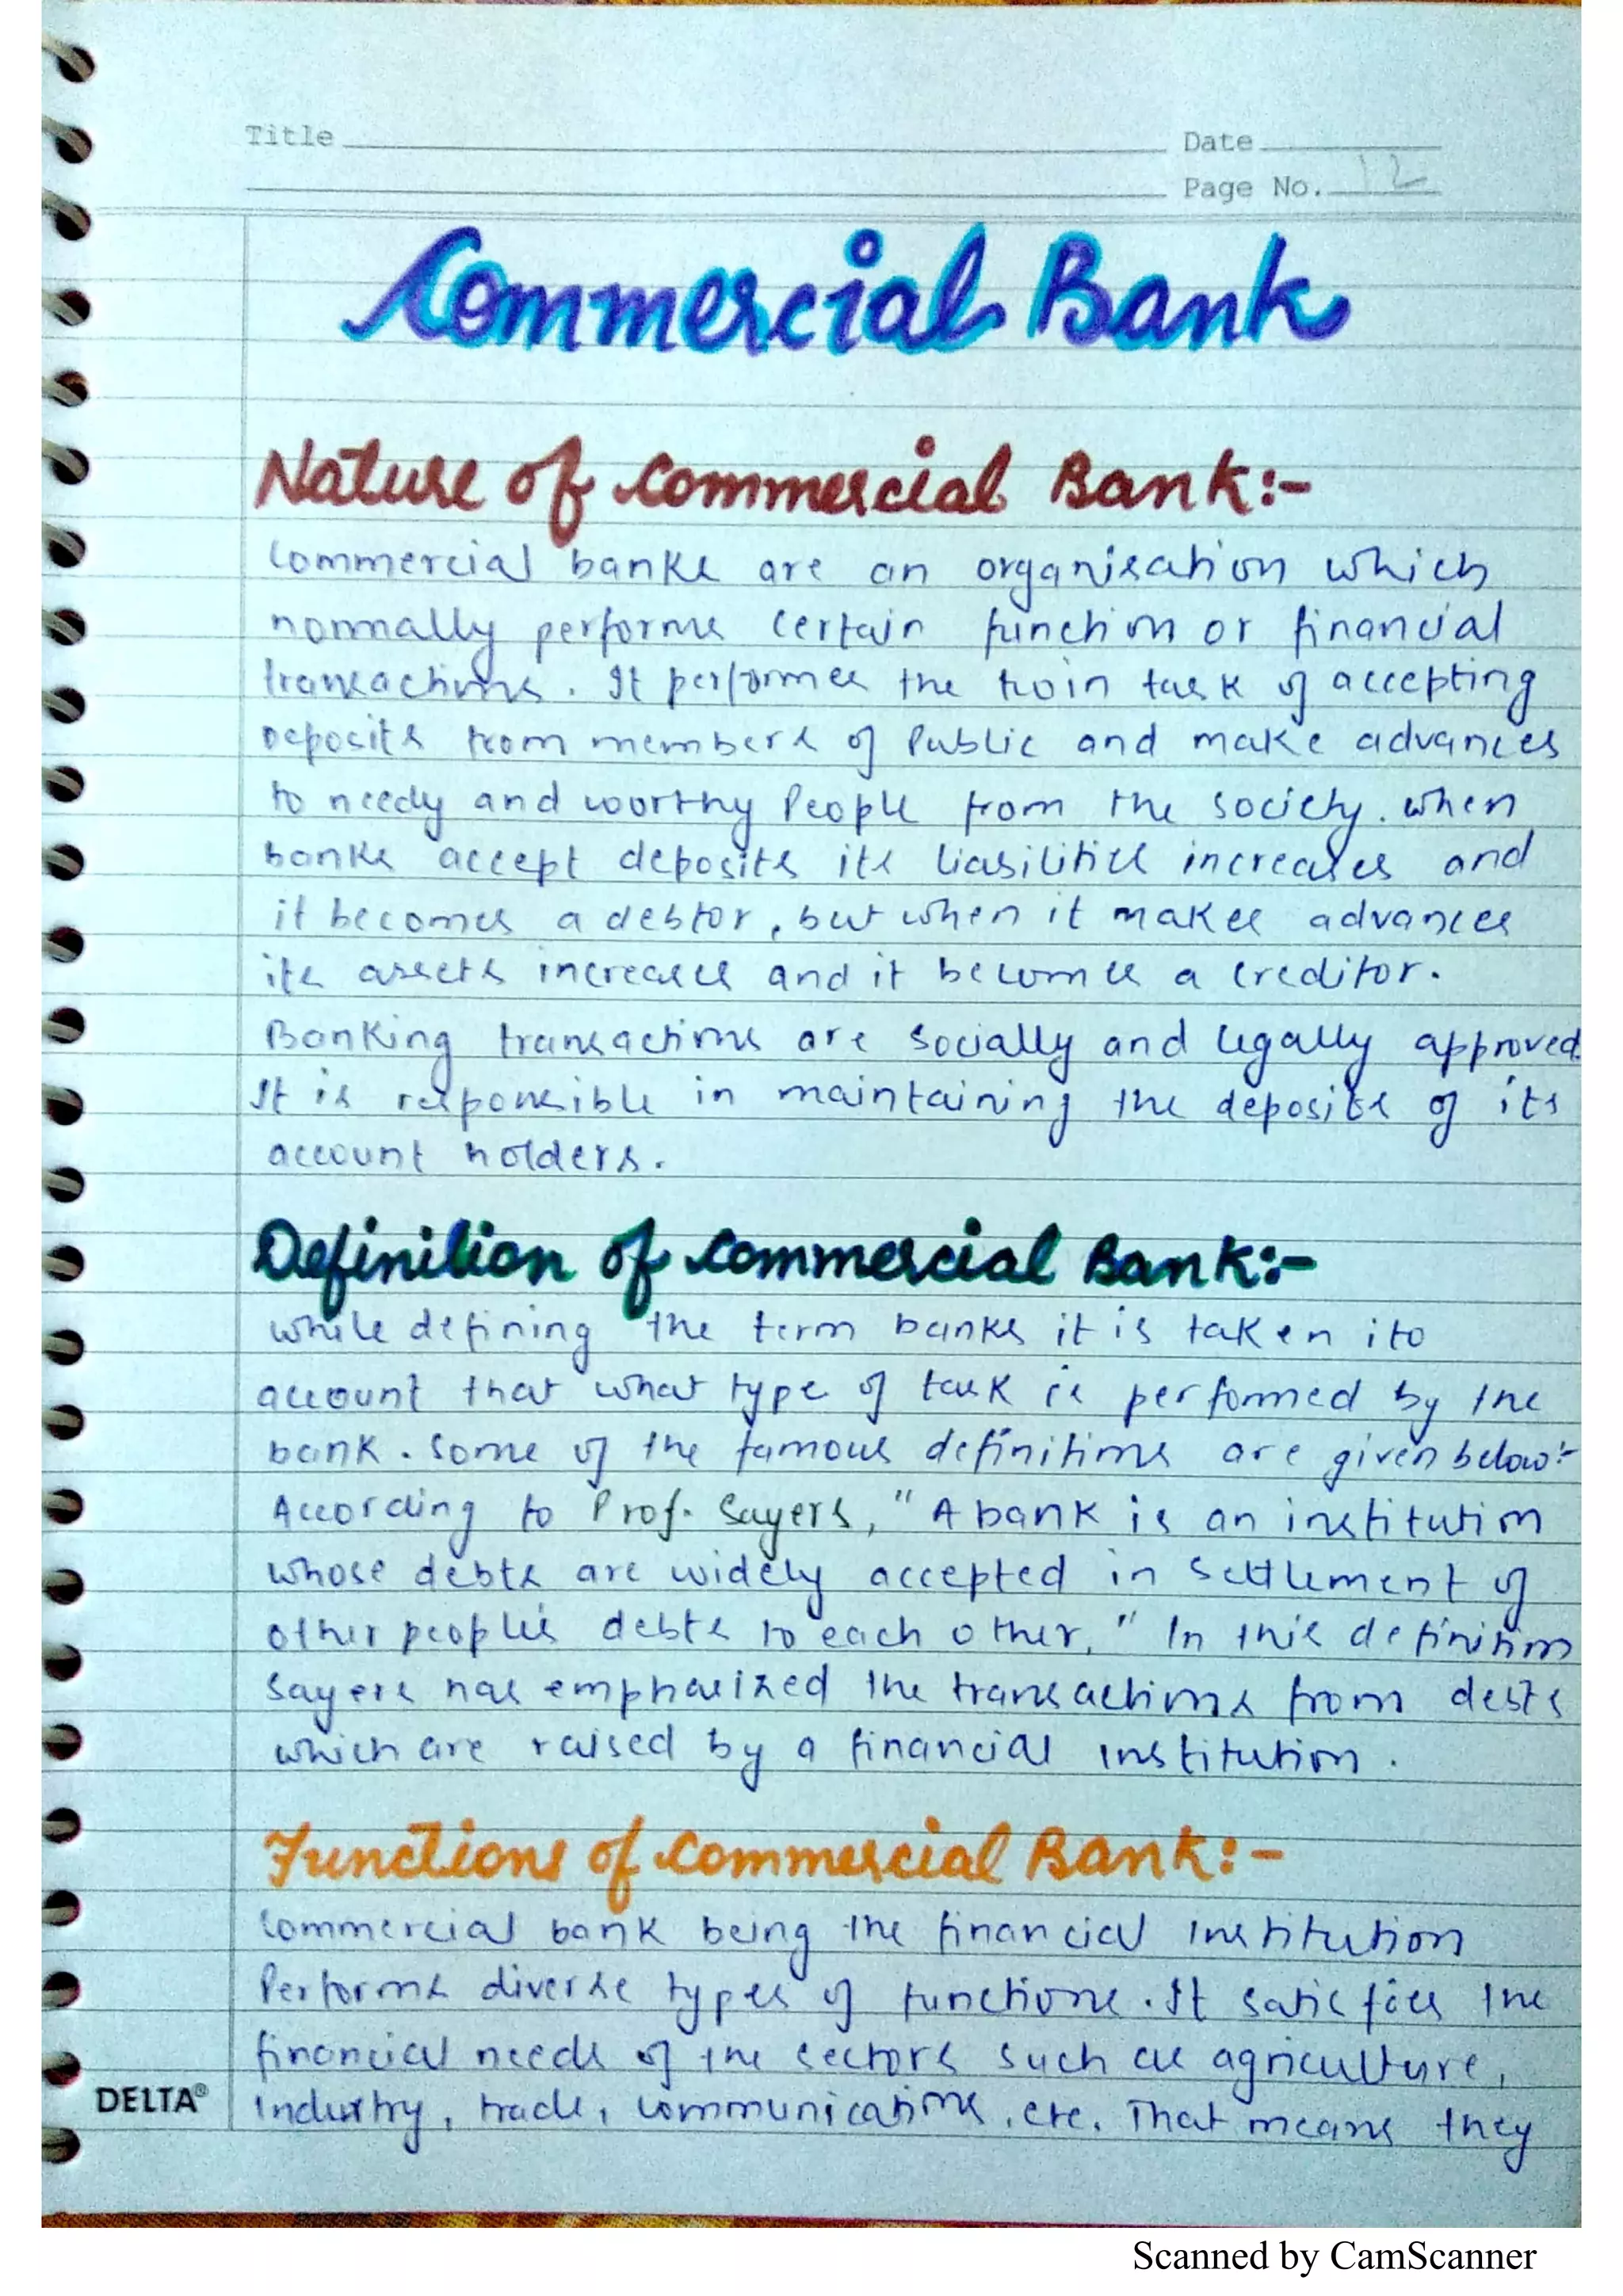 Title
Date
Page No. 12
Commercial Bank
Nature of Commercial Bank:-
Commercial banks are an organisation which
normally performs certain function or financial
transactions. It performes the twin task of accepting
Deposits from members of Public and make advances
to needy and worthy People from the society. when
banks accept deposits its liabilities increases and
it becomes a debtor, but when it makes advances
its assets increases and it becomes a creditor.
Banking transactions are socially and legally approved.
It is responsible in maintaining the deposits of its
account holders.
Definition of Commercial Bank:-
while defining the term banks it is taken ito
account that what type of task is performed by the
bank. Some of the famous definitions are given below:-
According to Prof. Sayers, "A bank is an institution
whose debts are widely accepted in settlement of
other people's debts to each other," In this definition
Sayers has emphasized the transactions from debts
which are raised by a financial institution.
Functions of Commercial Bank:-
Commercial bank being the financial institution
Performs diverse types of functions. It satisfies the
financial needs of the sectors such as agriculture,
Industry, trade, communications, etc. That means they
DELTA®
Scanned by CamScanner